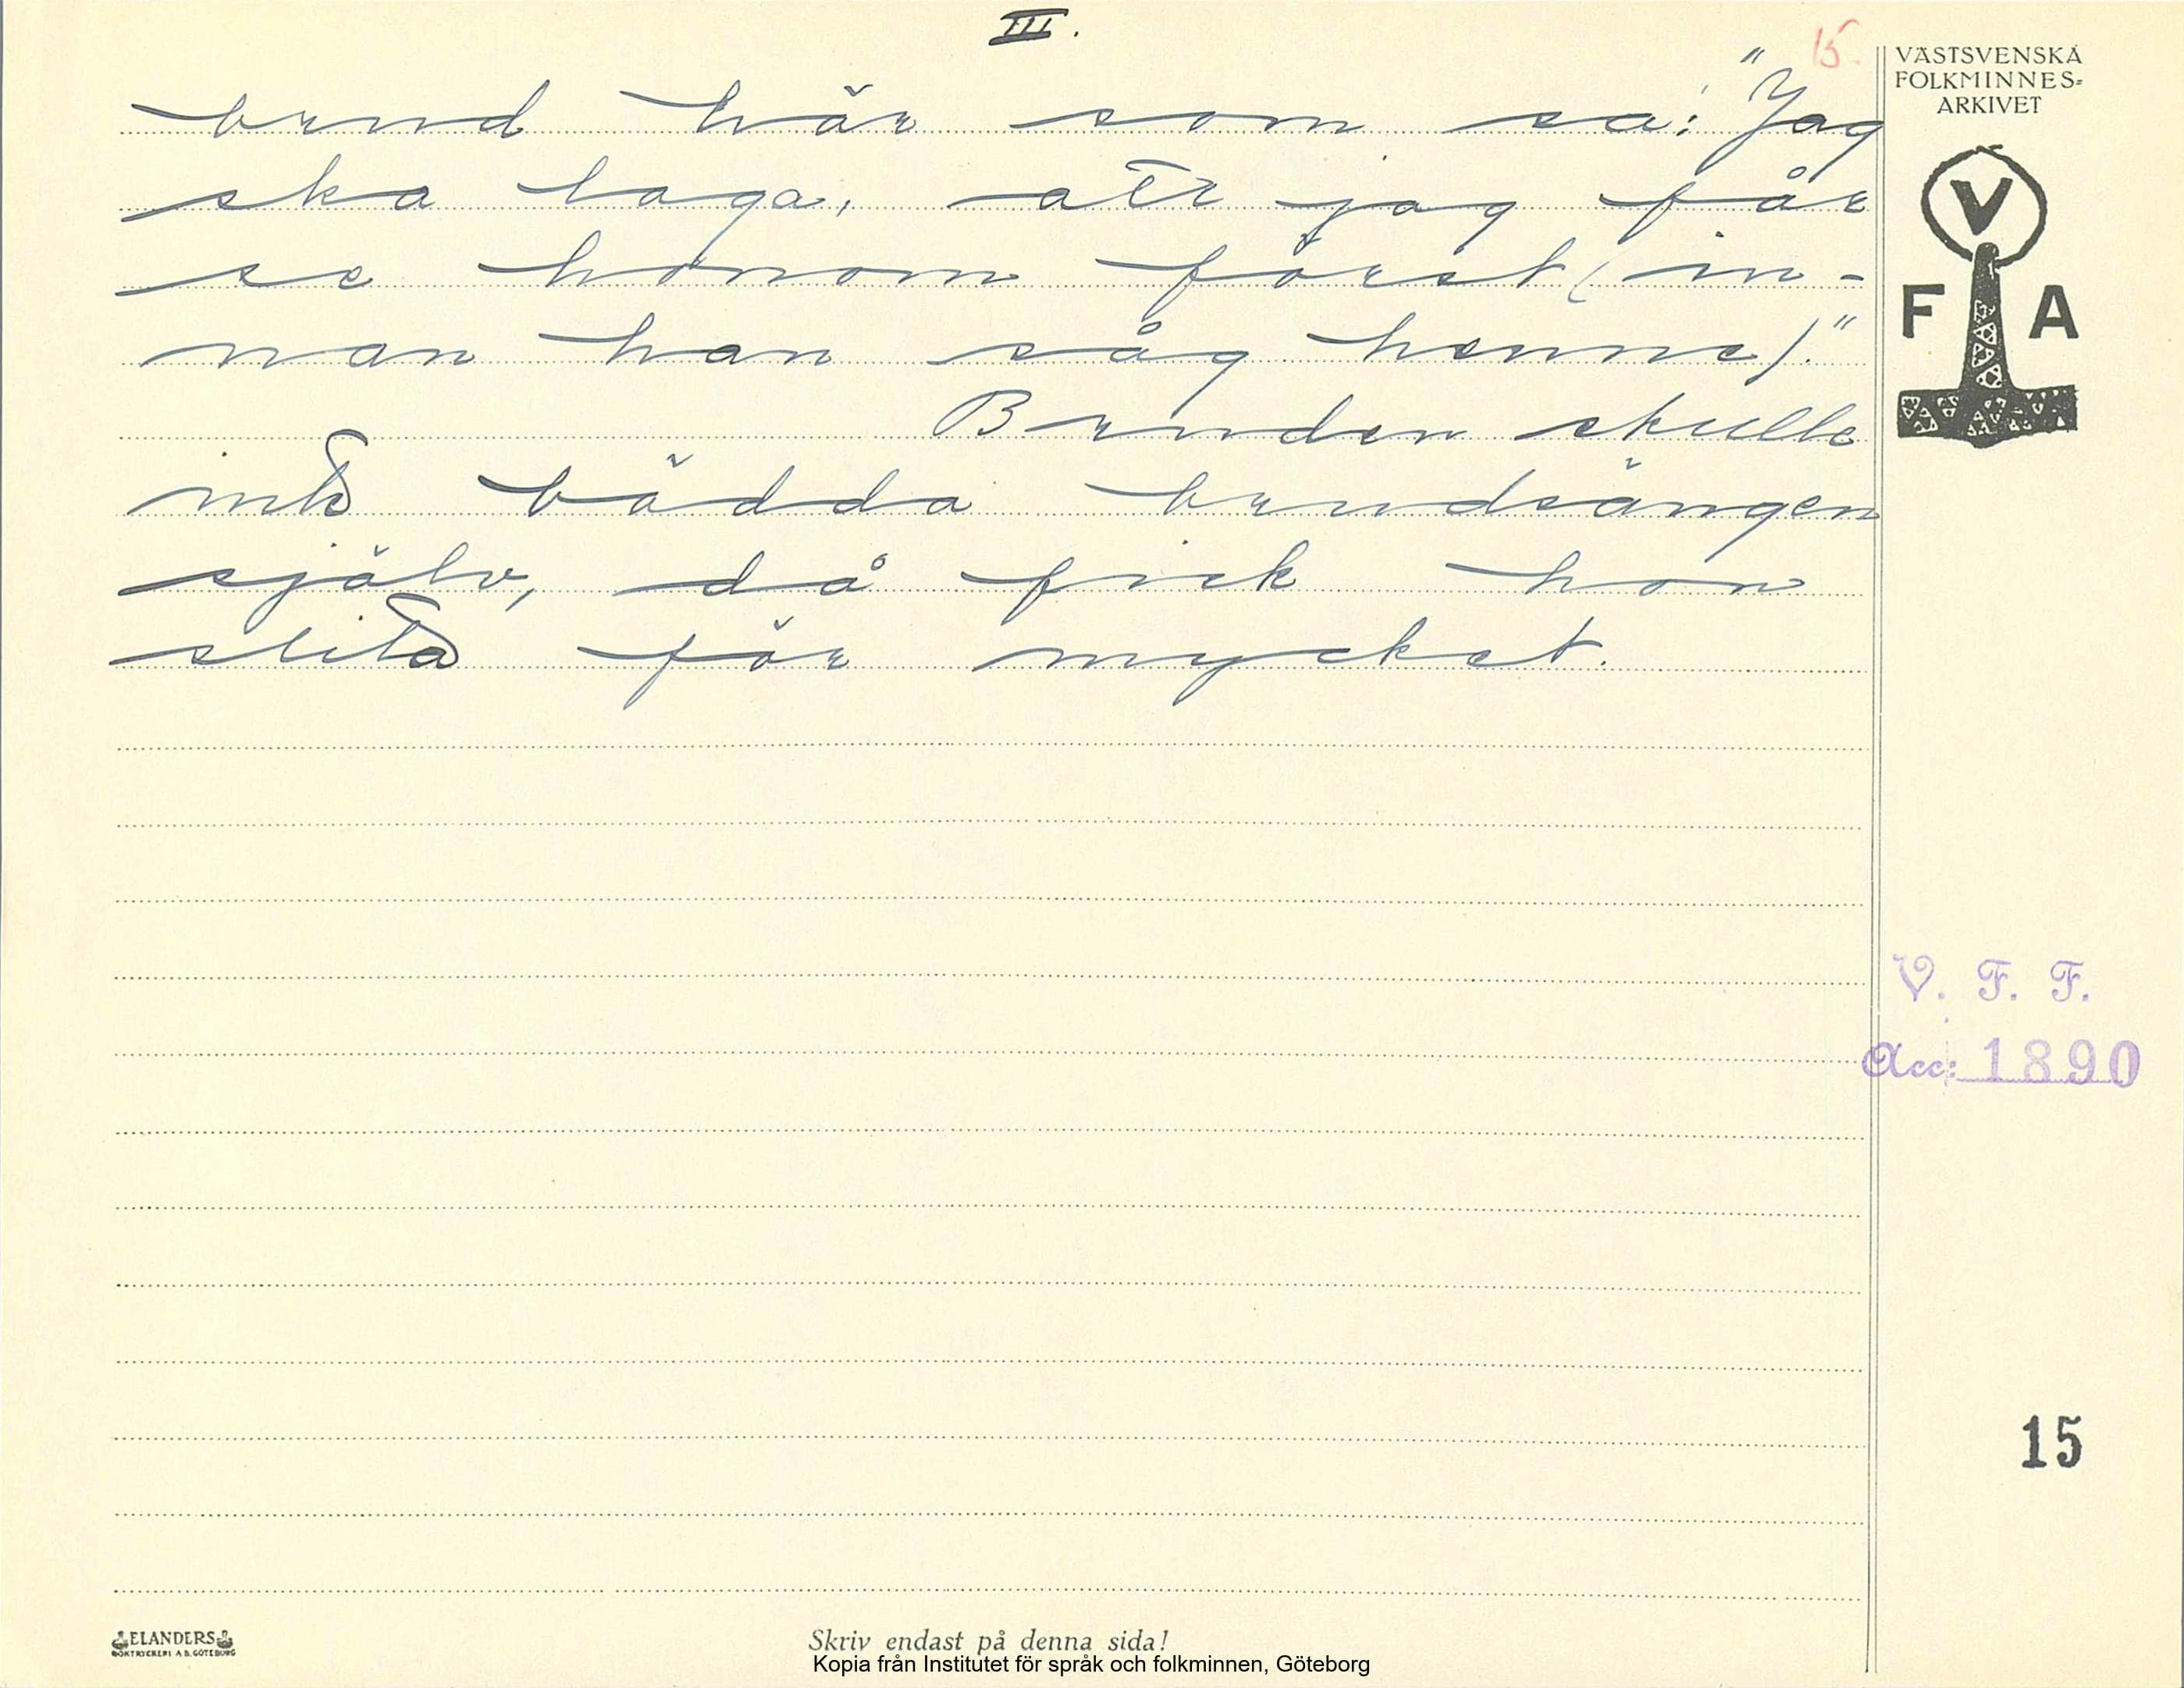 III.
15.
brud här som sa: "Jag
ska laga, att jag får
se honom först (in-
nan han såg henne)."
Bruden skulle
inte bädda brudsängen
själv, då fick hon
slita för mycket.
VÄSTSVENSKA
FOLKMINNES-
ARKIVET
V
F A
V. F. F.
Acc: 1890
15
ELANDERS
BOKTRYCKERI A.B. GÖTEBORG
Skriv endast på denna sida!
Kopia från Institutet för språk och folkminnen, Göteborg